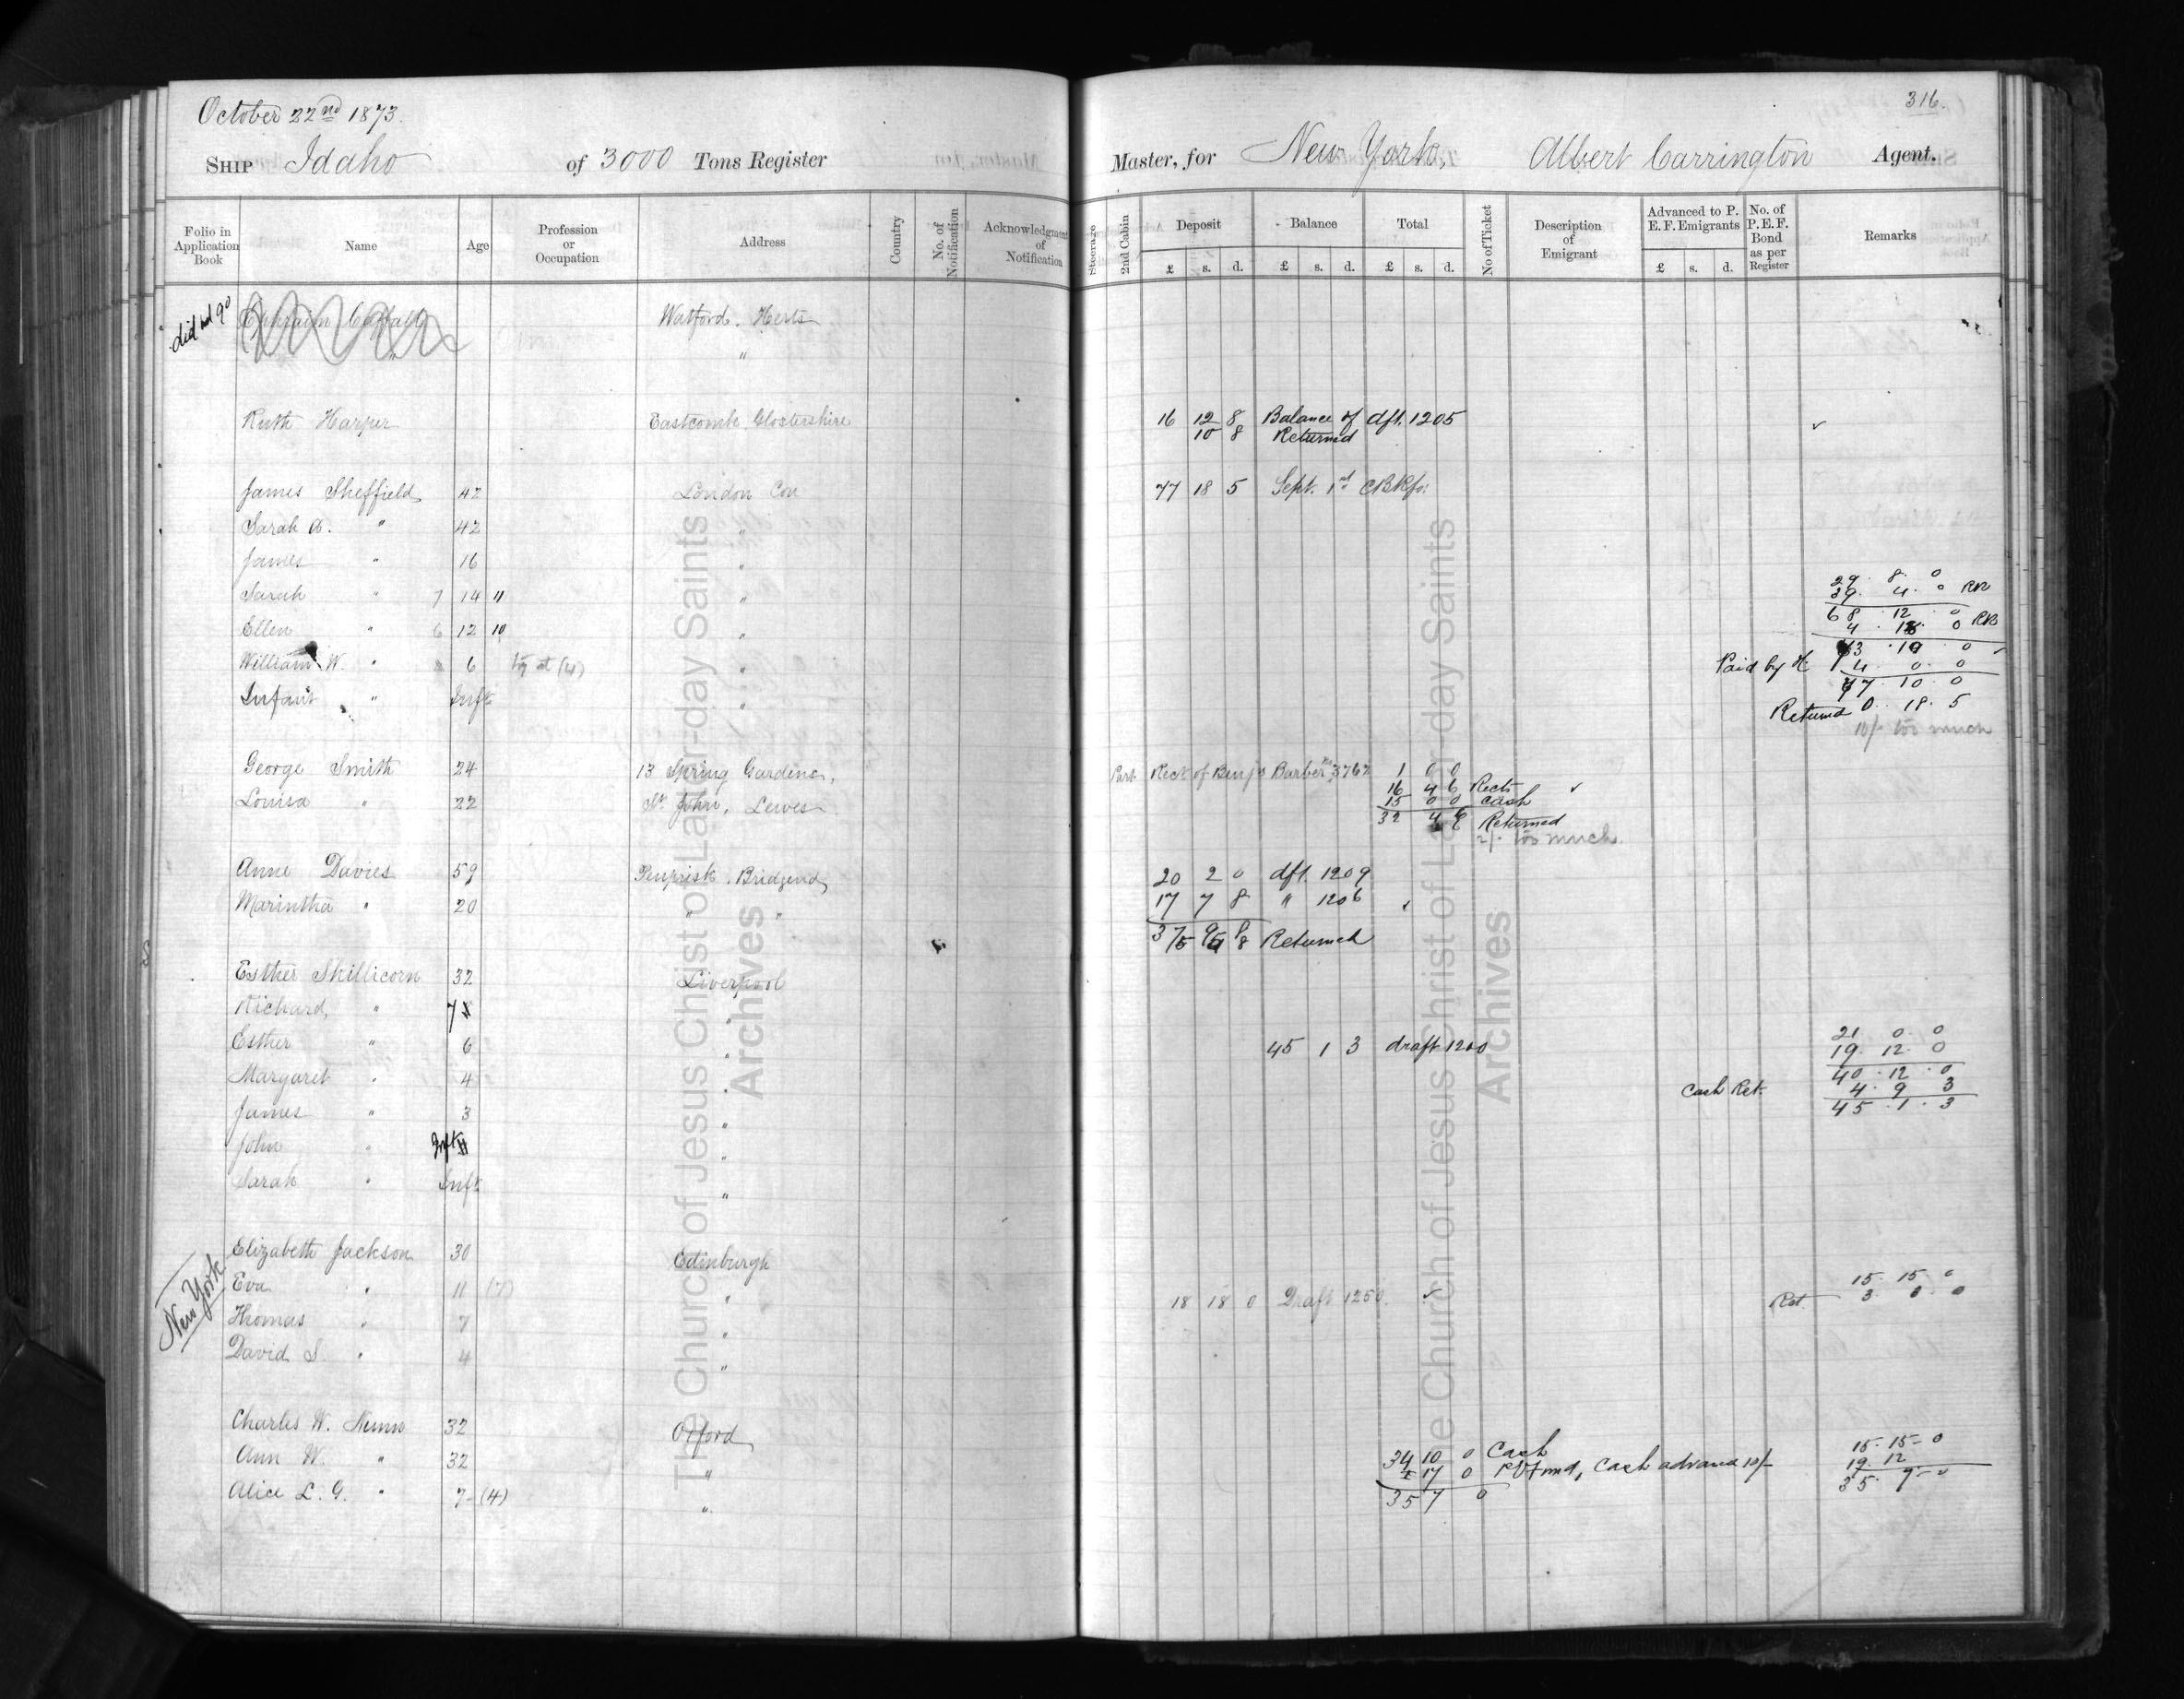 October 22nd 1873.
316.
SHIP Idaho of 3000 Tons Register Master, for New York. Albert Carrington Agent.
Folio in Application Book Name Age Profession or Occupation Address Country No. of Notification Acknowledgment of Notification Steerage 2nd Cabin Deposit Balance Total No of Ticket Description of Emigrant Advanced to P. E. F. Emigrants No. of P.E.F. Bond as per Register Remarks
£ s. d. £ s. d. £ s. d. £ s. d.
did not go Ephraim Watford. Herts
" "
Ruth Harper Eastcomb, Glostershire 16 12 8 Balance of dft. 1205
10 8 Returned
James Sheffield 42 London Con 77 18 5 Sept. 1st
Sarah A. " 42 "
James " 16 "
29. 8. 0
Sarah " 7 14 11 " 39. 4. 0 RR
68. 12. 0
Ellen " 6 12 10 " 4 0 RR
William W. " 6 (4) " 19. 0
Paid by 4. 0. 0
Infant " Inft " 77. 10. 0
Returned 0. 18. 5
10/- too much
George Smith 24 13 Spring Gardens, Part Rect of Benj Barber 3762 1 0 0
16 4 6 Rects
Louisa " 22 St. John, Lewes 15 0 0 Cash
32 4 6 Returned
2/- too much.
Anne Davies 59 Penprisk. Bridgend 20 2 0 dft. 1209
Marintha " 20 " " 17 7 8 " 1206
Returned
Esther Skillicorn 32 Liverpool
Richard, " 7 "
21 0 0
Esther " 6 " 45 1 3 draft 1200 19. 12. 0
40. 12. 0
Margaret " 4 " Cash Ret. 4. 9 3
James " 3 " 45. 1. 3
John " Inft "
Sarah " Inft "
New York
Elizabeth Jackson 30 Edinburgh
Eva " 11 (7) " 18 18 0 Draft 1250. 15. 15 0
Thomas " 7 " Ret. 3. 0 0
David S. " 4 "
Charles W. Nunn 32 Oxford
34 10 0 Cash 15. 15 - 0
Ann W. " 32 " 17 0 Refund, Cash advance 10/- 19. 12
Alice L. G. " 7 - (4) " 35 7 0 35. 7 - 0
The Church of Jesus Christ of Latter-day Saints
Archives
The Church of Jesus Christ of Latter-day Saints
Archives